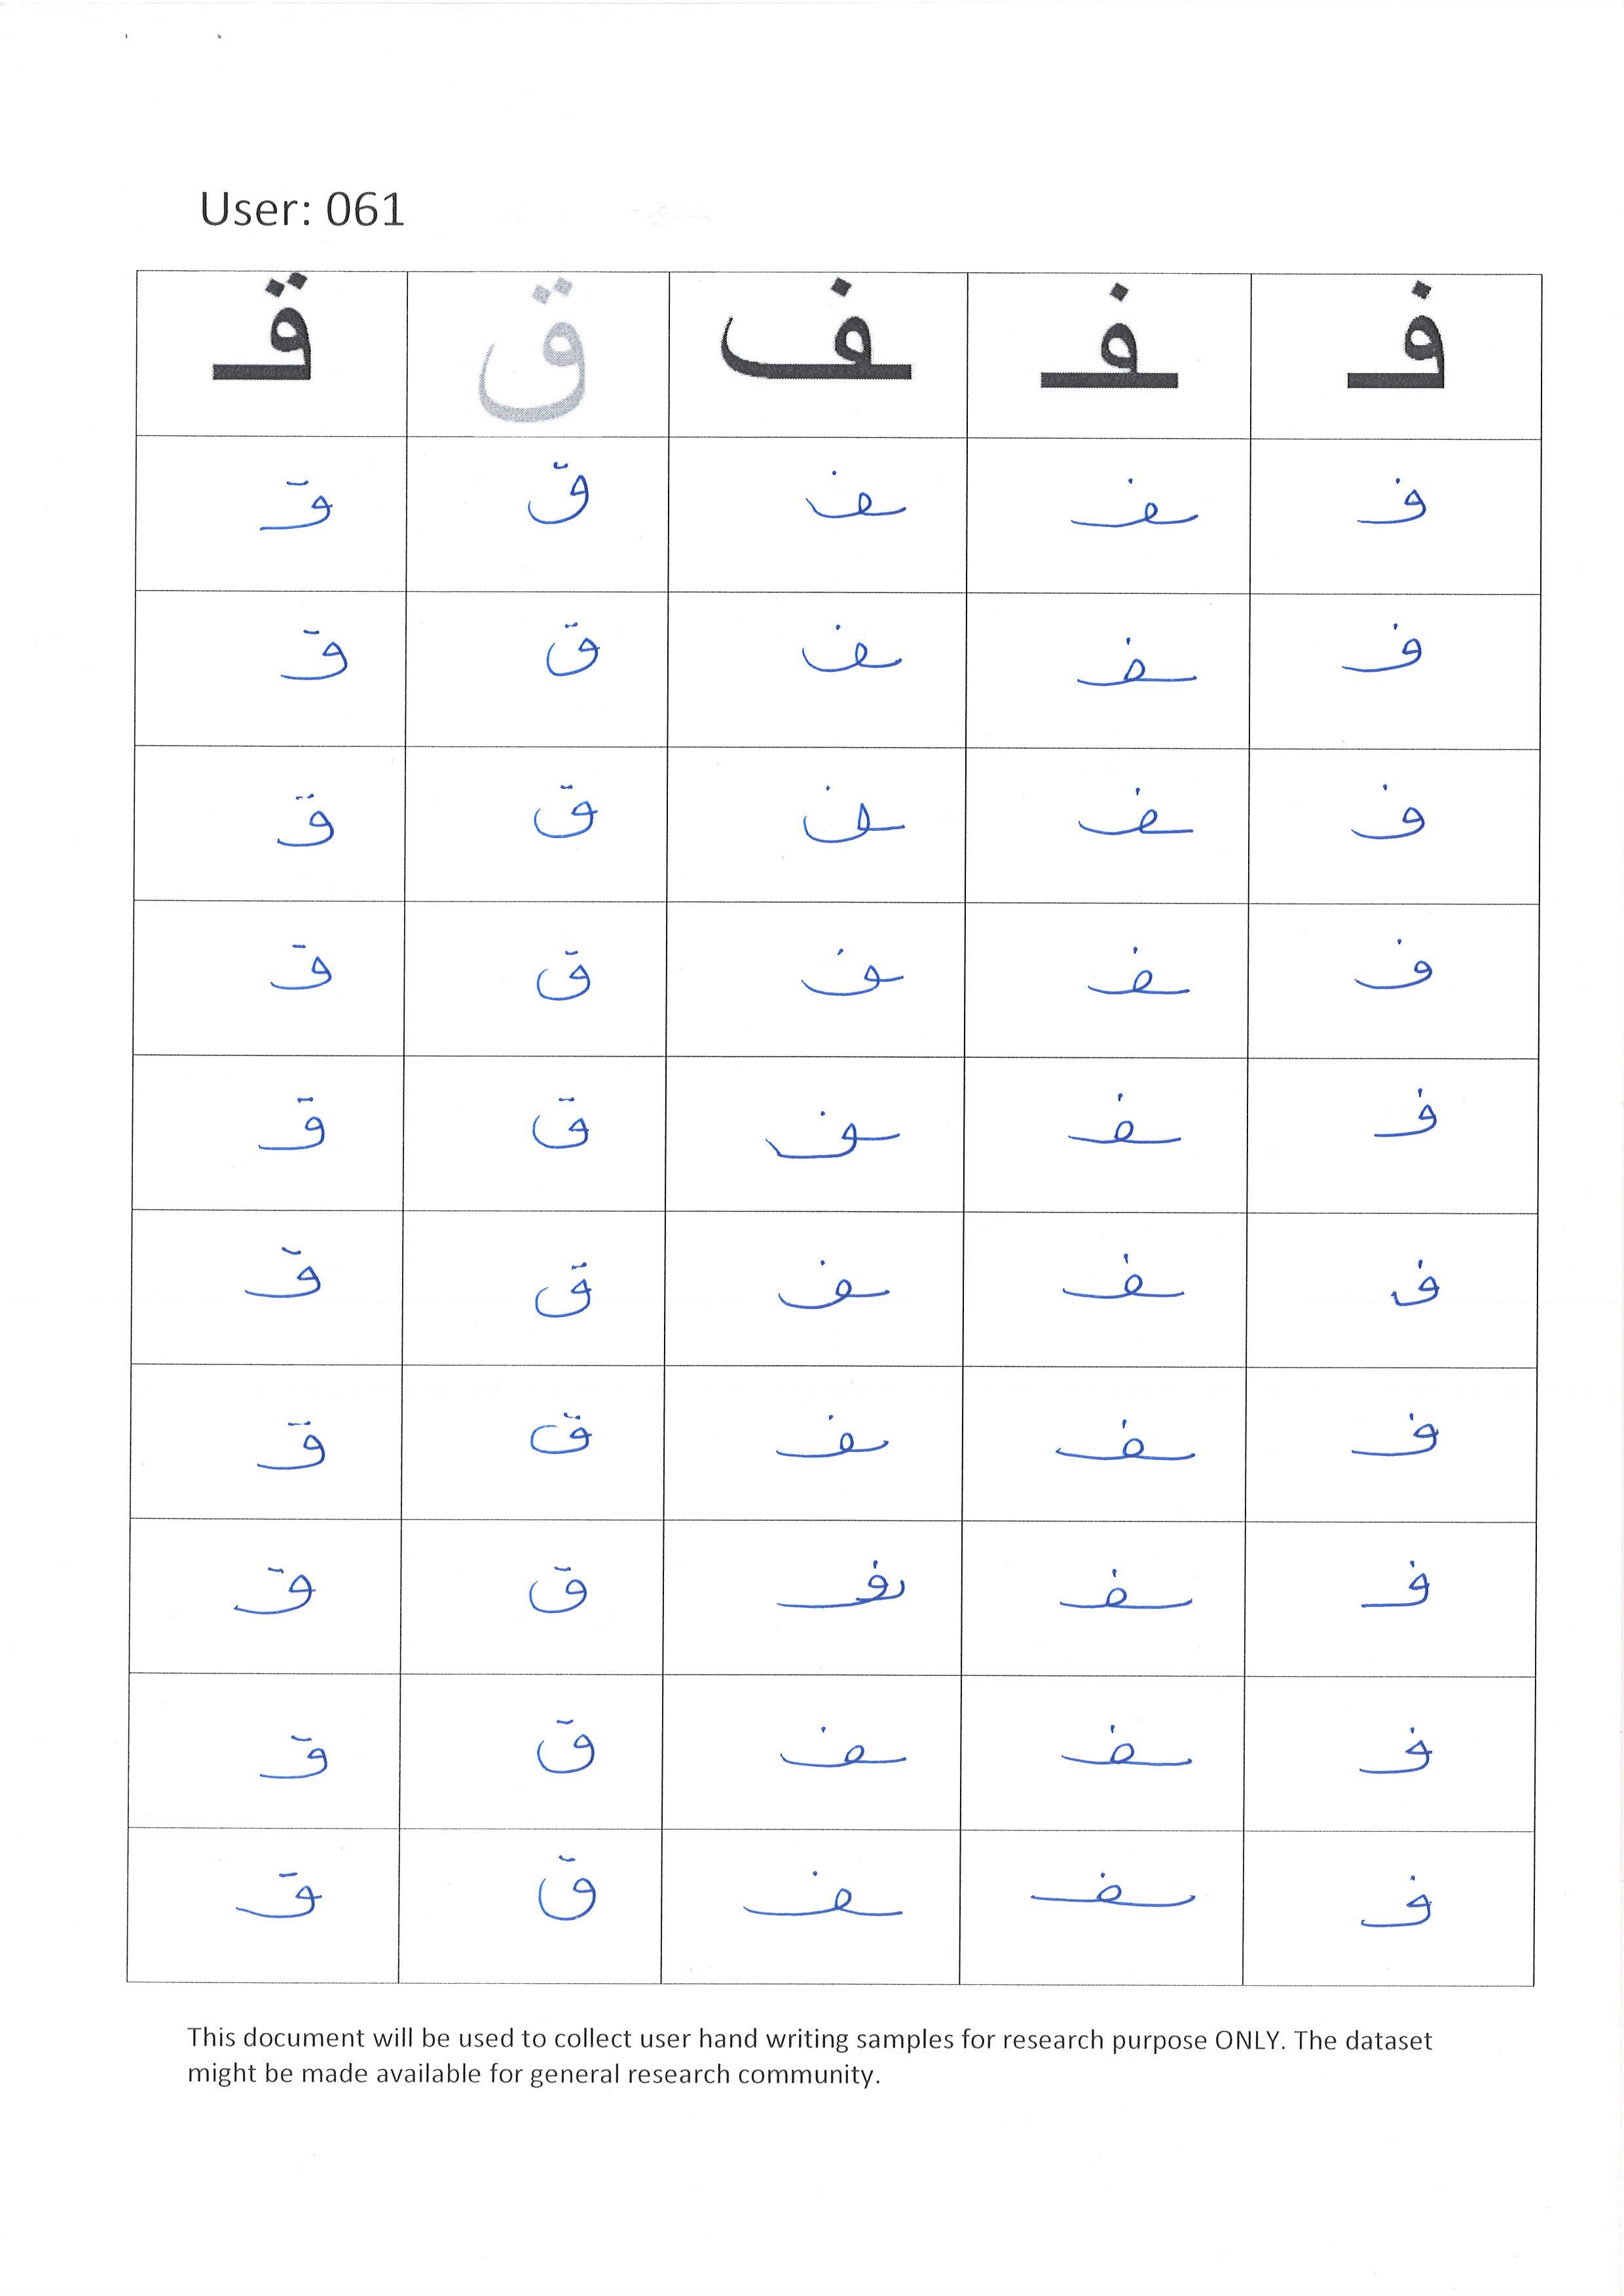 User: 061
فـ ـفـ ـف ق قـ
فـ ـفـ ـف ق قـ
فـ ـفـ ـف ق قـ
فـ ـفـ ـف ق قـ
فـ ـفـ ـف ق قـ
فـ ـفـ ـف ق قـ
فـ ـفـ ـف ق قـ
فـ ـفـ ـف ق قـ
فـ ـفـ ـف ق قـ
فـ ـفـ ـف ق قـ
فـ ـفـ ـف ق قـ
This document will be used to collect user hand writing samples for research purpose ONLY. The dataset
might be made available for general research community.